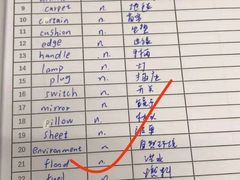 9 carpet n. 地毯
10 curtain n. 窗帘
11 cushion n. 坐垫
12 edge n. 边缘
13 handle n.
14 lamp n. 灯
15 plug n. 插座
16 switch n. 开关
17 mirror n. 镜子
18 pillow n.
19 sheet n.
20 environment n. 自然环境
21 flood n. 洪水
22 fuel n. 燃料